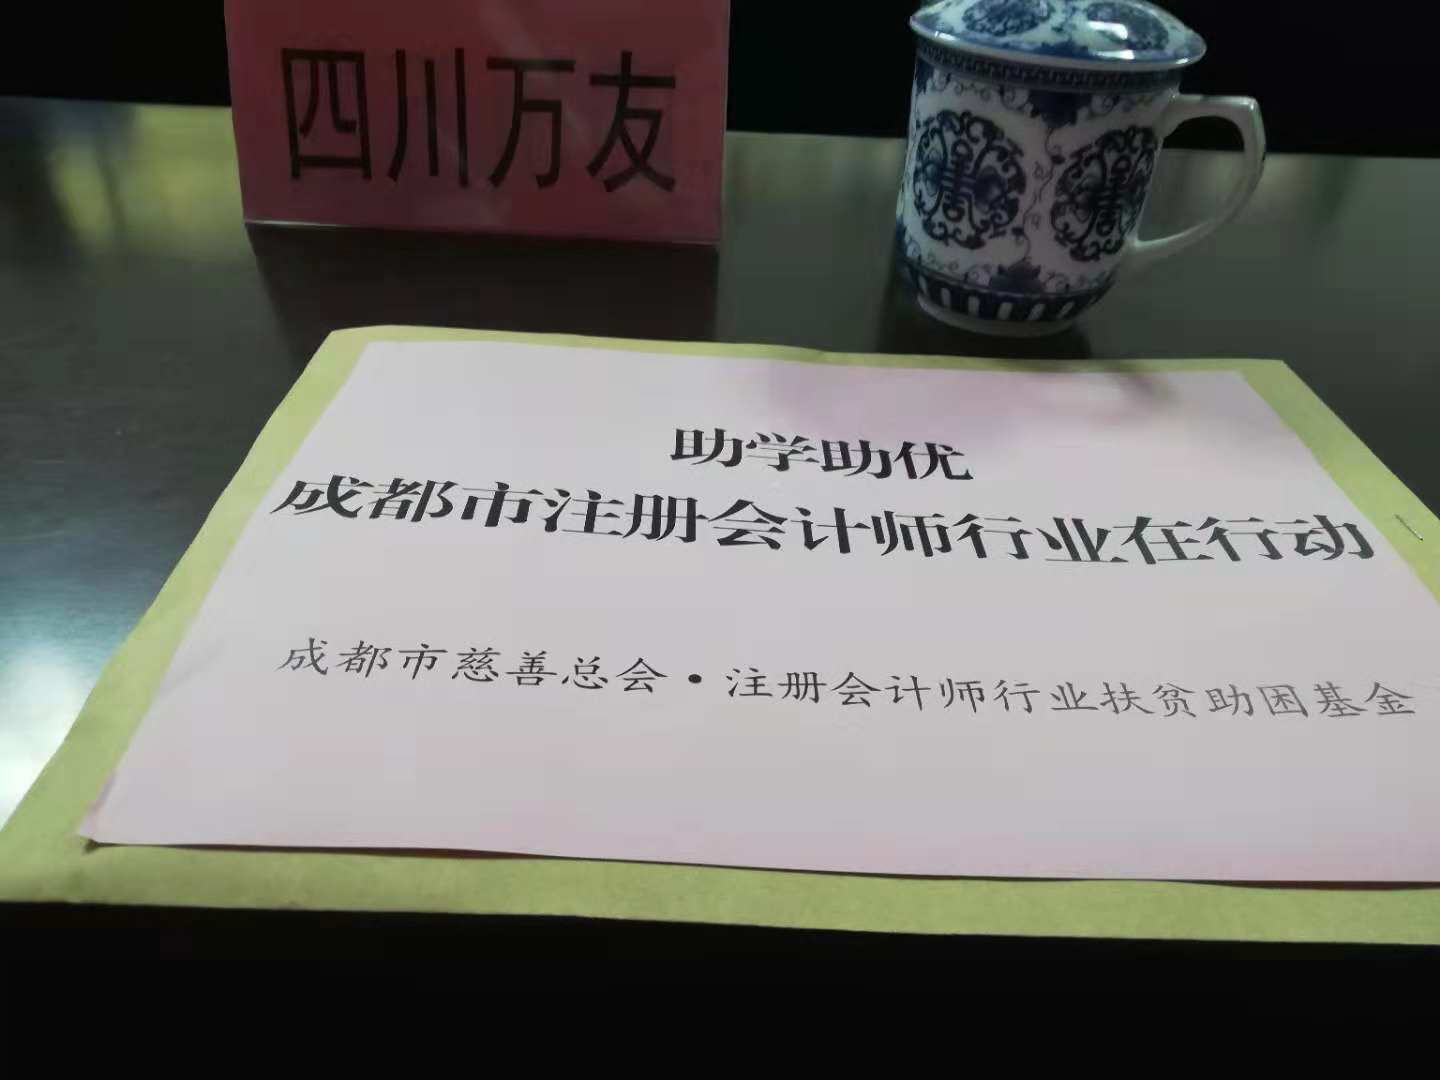 四川万友
助学助优
成都市注册会计师行业在行动
成都市慈善总会·注册会计师行业扶贫助困基金